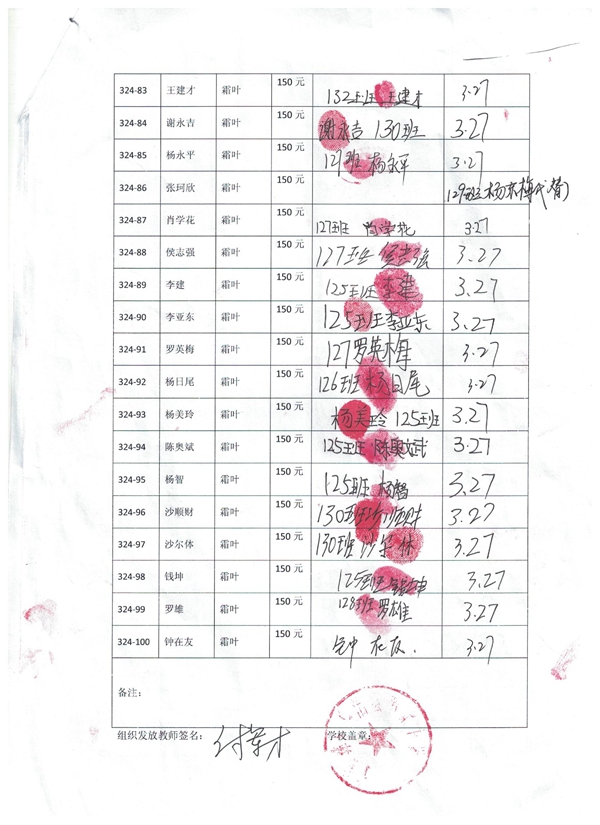 324-83 王建才 霜叶 150 元 132班 王建才 3.27
324-84 谢永吉 霜叶 150 元 谢永吉 130班 3.27
324-85 杨永平 霜叶 150 元 129班 杨永平 3.27
324-86 张珂欣 霜叶 150 元 129班 杨东梅代替)
324-87 肖学花 霜叶 150 元 127班 肖学花 3.27
324-88 侯志强 霜叶 150 元 127班 侯志强 3.27
324-89 李建 霜叶 150 元 125班 李建 3.27
324-90 李亚东 霜叶 150 元 125班 李亚东 3.27
324-91 罗英梅 霜叶 150 元 127罗英梅 3.27
324-92 杨日尾 霜叶 150 元 126班 杨日尾 3.27
324-93 杨美玲 霜叶 150 元 杨美玲 125班 3.27
324-94 陈奥斌 霜叶 150 元 125班 陈奥斌 3.27
324-95 杨智 霜叶 150 元 125班 杨智 3.27
324-96 沙顺财 霜叶 150 元 130班 沙顺财 3.27
324-97 沙尔体 霜叶 150 元 130班 沙尔体 3.27
324-98 钱坤 霜叶 150 元 125班 钱坤 3.27
324-99 罗雄 霜叶 150 元 128班 罗雄 3.27
324-100 钟在友 霜叶 150 元 3.27
备注:
组织发放教师签名: 学校盖章: